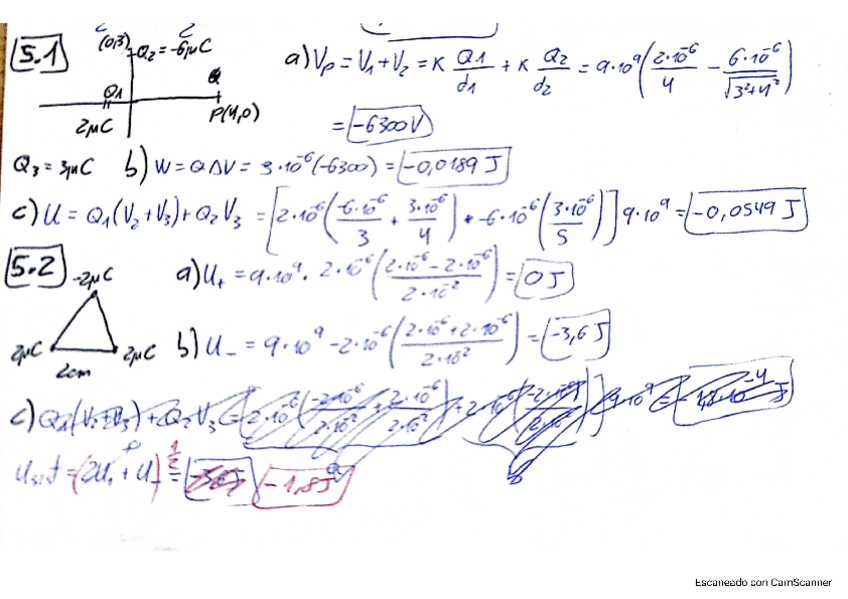 5.1
(0,3) Q₂ = -6μC
Q1
2μC
Q
P(4,0)
a) Vp = V₁ + V₂ = K Q1/d1 + K Q2/d2 = 9·10⁹(2·10⁻⁶/4 - 6·10⁻⁶/√(3²+4²))
= -6300V
Q₃ = 3μC b) W = Q ΔV = 3·10⁻⁶(-6300) = -0,0189 J
c) U = Q₁(V₂+V₃) + Q₂V₃ = [2·10⁻⁶(-6·10⁻⁶/3 + 3·10⁻⁶/4) + -6·10⁻⁶(3·10⁻⁶/5)] 9·10⁹ = -0,0549 J
5.2
-2μC
2μC
2μC
2cm
a) U₊ = 9·10⁹· 2·10⁻⁶(2·10⁻⁶ - 2·10⁻⁶/2·10⁻²) = 0 J
b) U₋ = 9·10⁹ -2·10⁻⁶(2·10⁻⁶ + 2·10⁻⁶/2·10⁻²) = -3,6 J
c) Q1(V₂+V₃) + Q₂V₃ =
Usist = (2U₊ + U₋) 1/2 = -1,8J
Escaneado con CamScanner